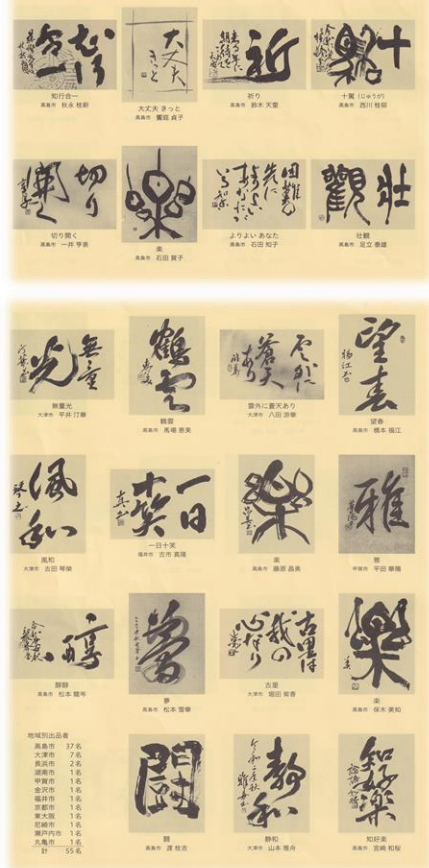 知行合一
高島市 秋永 桂樹
大丈夫 きっと
大丈夫 きっと
高島市 饗庭 貞子
祈
祈り
高島市 鈴木 天童
十駕
十駕(じゅうが)
高島市 西川 桂邨
切り開く
切り開く
高島市 一井 亨泉
楽
楽
高島市 石田 賢子
よりよい あなた
高島市 石田 知子
壮観
高島市 足立 泰雄
無量光
無量光
大津市 平井 汀華
鶴雲
鶴雲
高島市 馬場 恵美
雲外に蒼天あり
雲外に蒼天あり
大津市 八田 游華
望春
望春
高島市 橋本 福江
風和
風和
大津市 古田 琴榮
一日十笑
一日十笑
福井市 吉市 真隆
楽
楽
高島市 藤原 昌美
雅
雅
甲賀市 平田 華隴
酔醇
高島市 松本 龍岑
夢
夢
高島市 松本 雪華
古里は我の心なり
古里
大津市 堀田 紫香
樂
楽
高島市 保木 美知
地域別出品者
高島市 37名
大津市 7名
長浜市 2名
湖南市 1名
甲賀市 1名
金沢市 1名
福井市 1名
京都市 1名
東大阪 1名
尼崎市 1名
瀬戸内市 1名
丸亀市 1名
計 55名
闘
闘
高島市 渡 桂志
静和
静和
大津市 山本 雅舟
知好楽
知好楽
高島市 宮崎 和桜